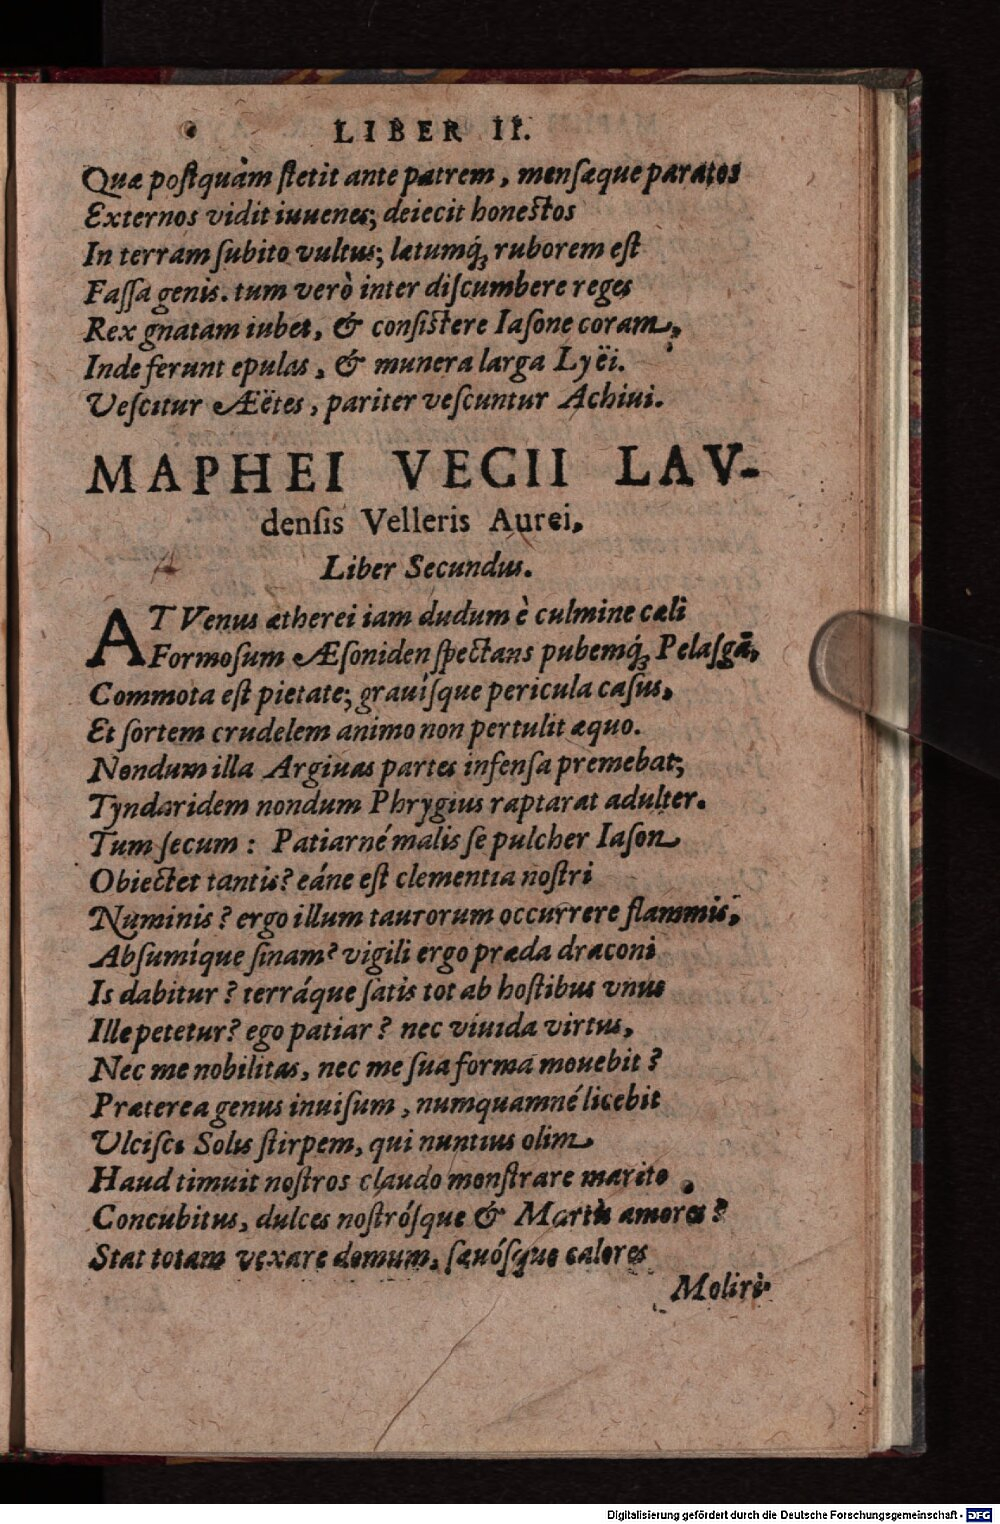 LIBER II.
Quæ poſtquàm ſtetit ante patrem, menſæque paratos
Externos vidit iuuenes; deiecit honestos
In terram ſubito vultus; lætumq́ꝫ ruborem eſt
Faſſa genis. tum verò inter diſcumbere reges
Rex gnatam iubet, & conſistere Iaſone coram,
Inde ferunt epulas, & munera larga Lyëi.
Veſcitur Æëtes, pariter veſcuntur Achiui.
MAPHEI VEGII LAV-
denſis Velleris Aurei,
Liber Secundus.
AT Venus ætherei iam dudum è culmine cæli
Formoſum Æſoniden ſpectans pubemq́ꝫ Pelaſgā,
Commota eſt pietate; grauíſque pericula caſus,
Et ſortem crudelem animo non pertulit æquo.
Nondum illa Argiuas partes infenſa premebat;
Tyndaridem nondum Phrygius raptarat adulter.
Tum ſecum: Patiarné malis ſe pulcher Iaſon
Obiectet tantis? eáne eſt clementia noſtri
Numinis? ergo illum taurorum occurrere flammis,
Abſumíque ſinam? vigili ergo præda draconi
Is dabitur? terráque ſatis tot ab hoſtibus vnus
Ille petetur? ego patiar? nec viuida virtus,
Nec me nobilitas, nec me ſua forma mouebit?
Præterea genus inuiſum, numquamné licebit
Vlciſci Solis ſtirpem, qui nuntius olim
Haud timuit noſtros claudo monſtrare marito
Concubitus, dulces noſtróſque & Martis amores?
Stat totam vexare domum, ſæuóſque calores
Moliri
Digitalisierung gefördert durch die Deutsche Forschungsgemeinschaft - DFG